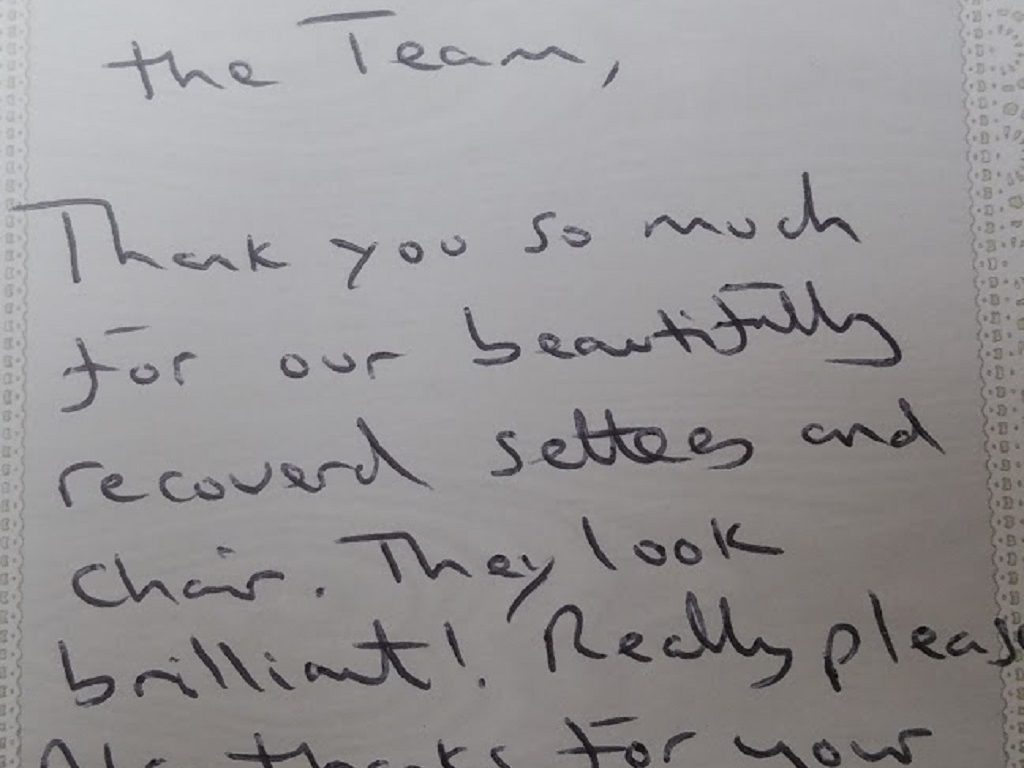 the Team,
Thank you so much
for our beautifully
recoverd settees and
chair. They look
brilliant! Really please
thanks for your